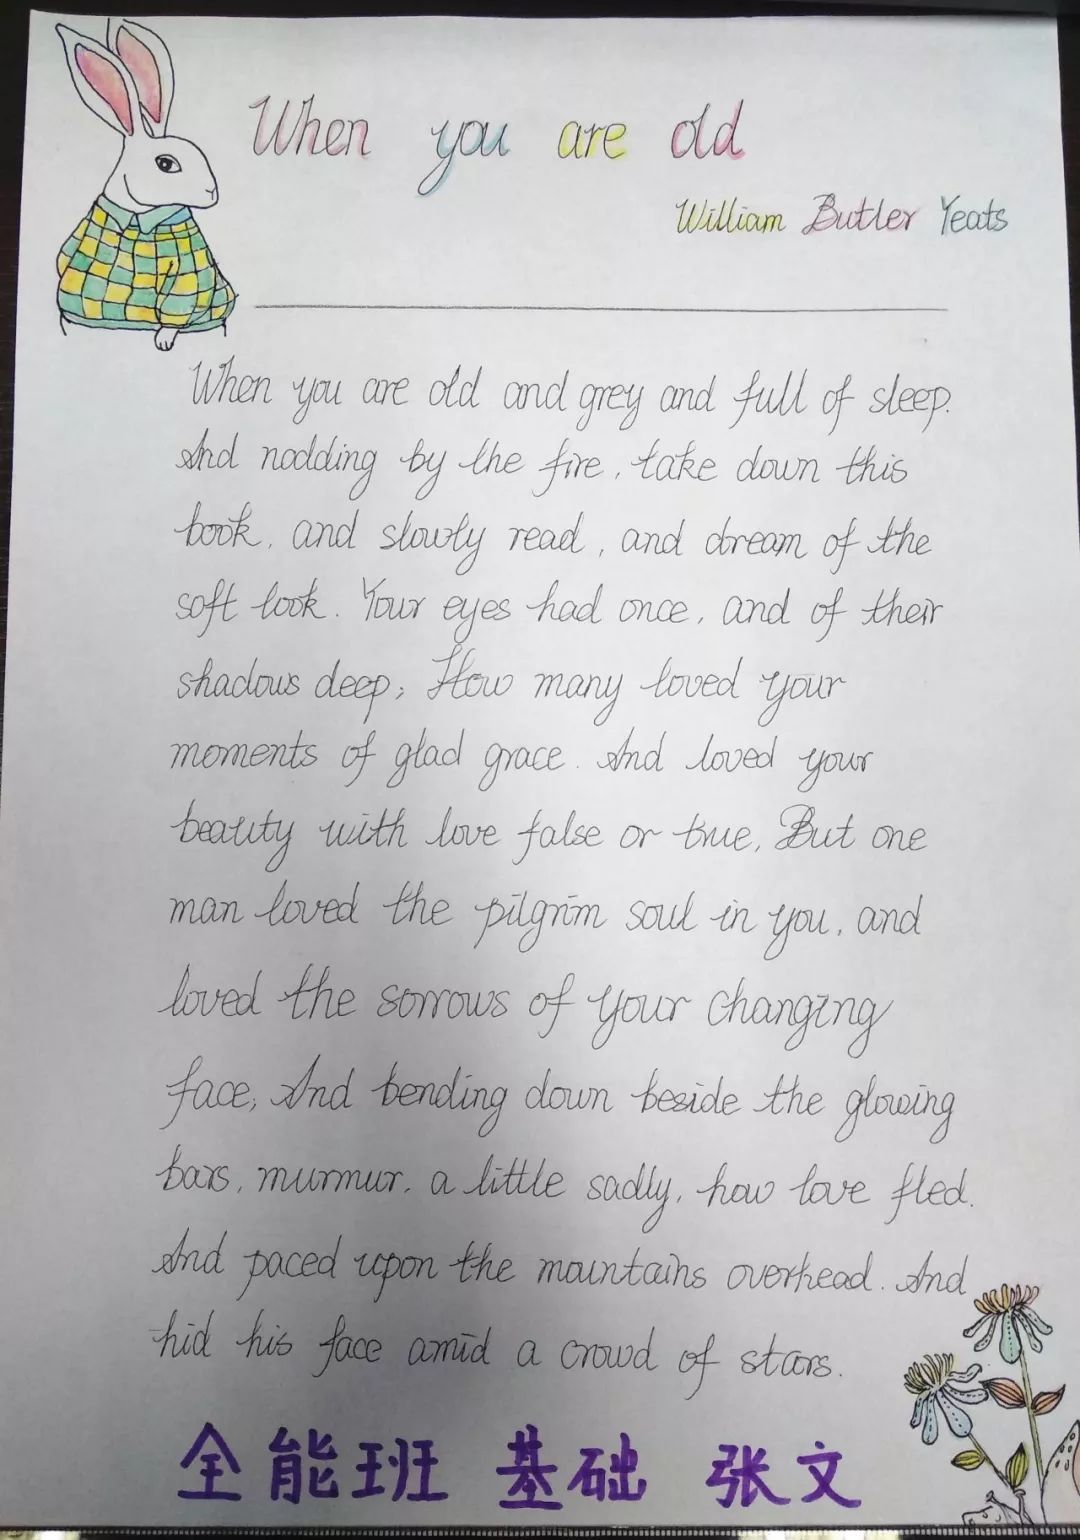 When you are old
William Butler Yeats
When you are old and grey and full of sleep.
And nodding by the fire, take down this
book, and slowly read, and dream of the
soft look. Your eyes had once, and of their
shadows deep; How many loved your
moments of glad grace. And loved your
beauty with love false or true, But one
man loved the pilgrim soul in you, and
loved the sorrows of your changing
face; And bending down beside the glowing
bars, murmur, a little sadly, how love fled.
And paced upon the mountains overhead. And
hid his face amid a crowd of stars.
全能班 基础 张文